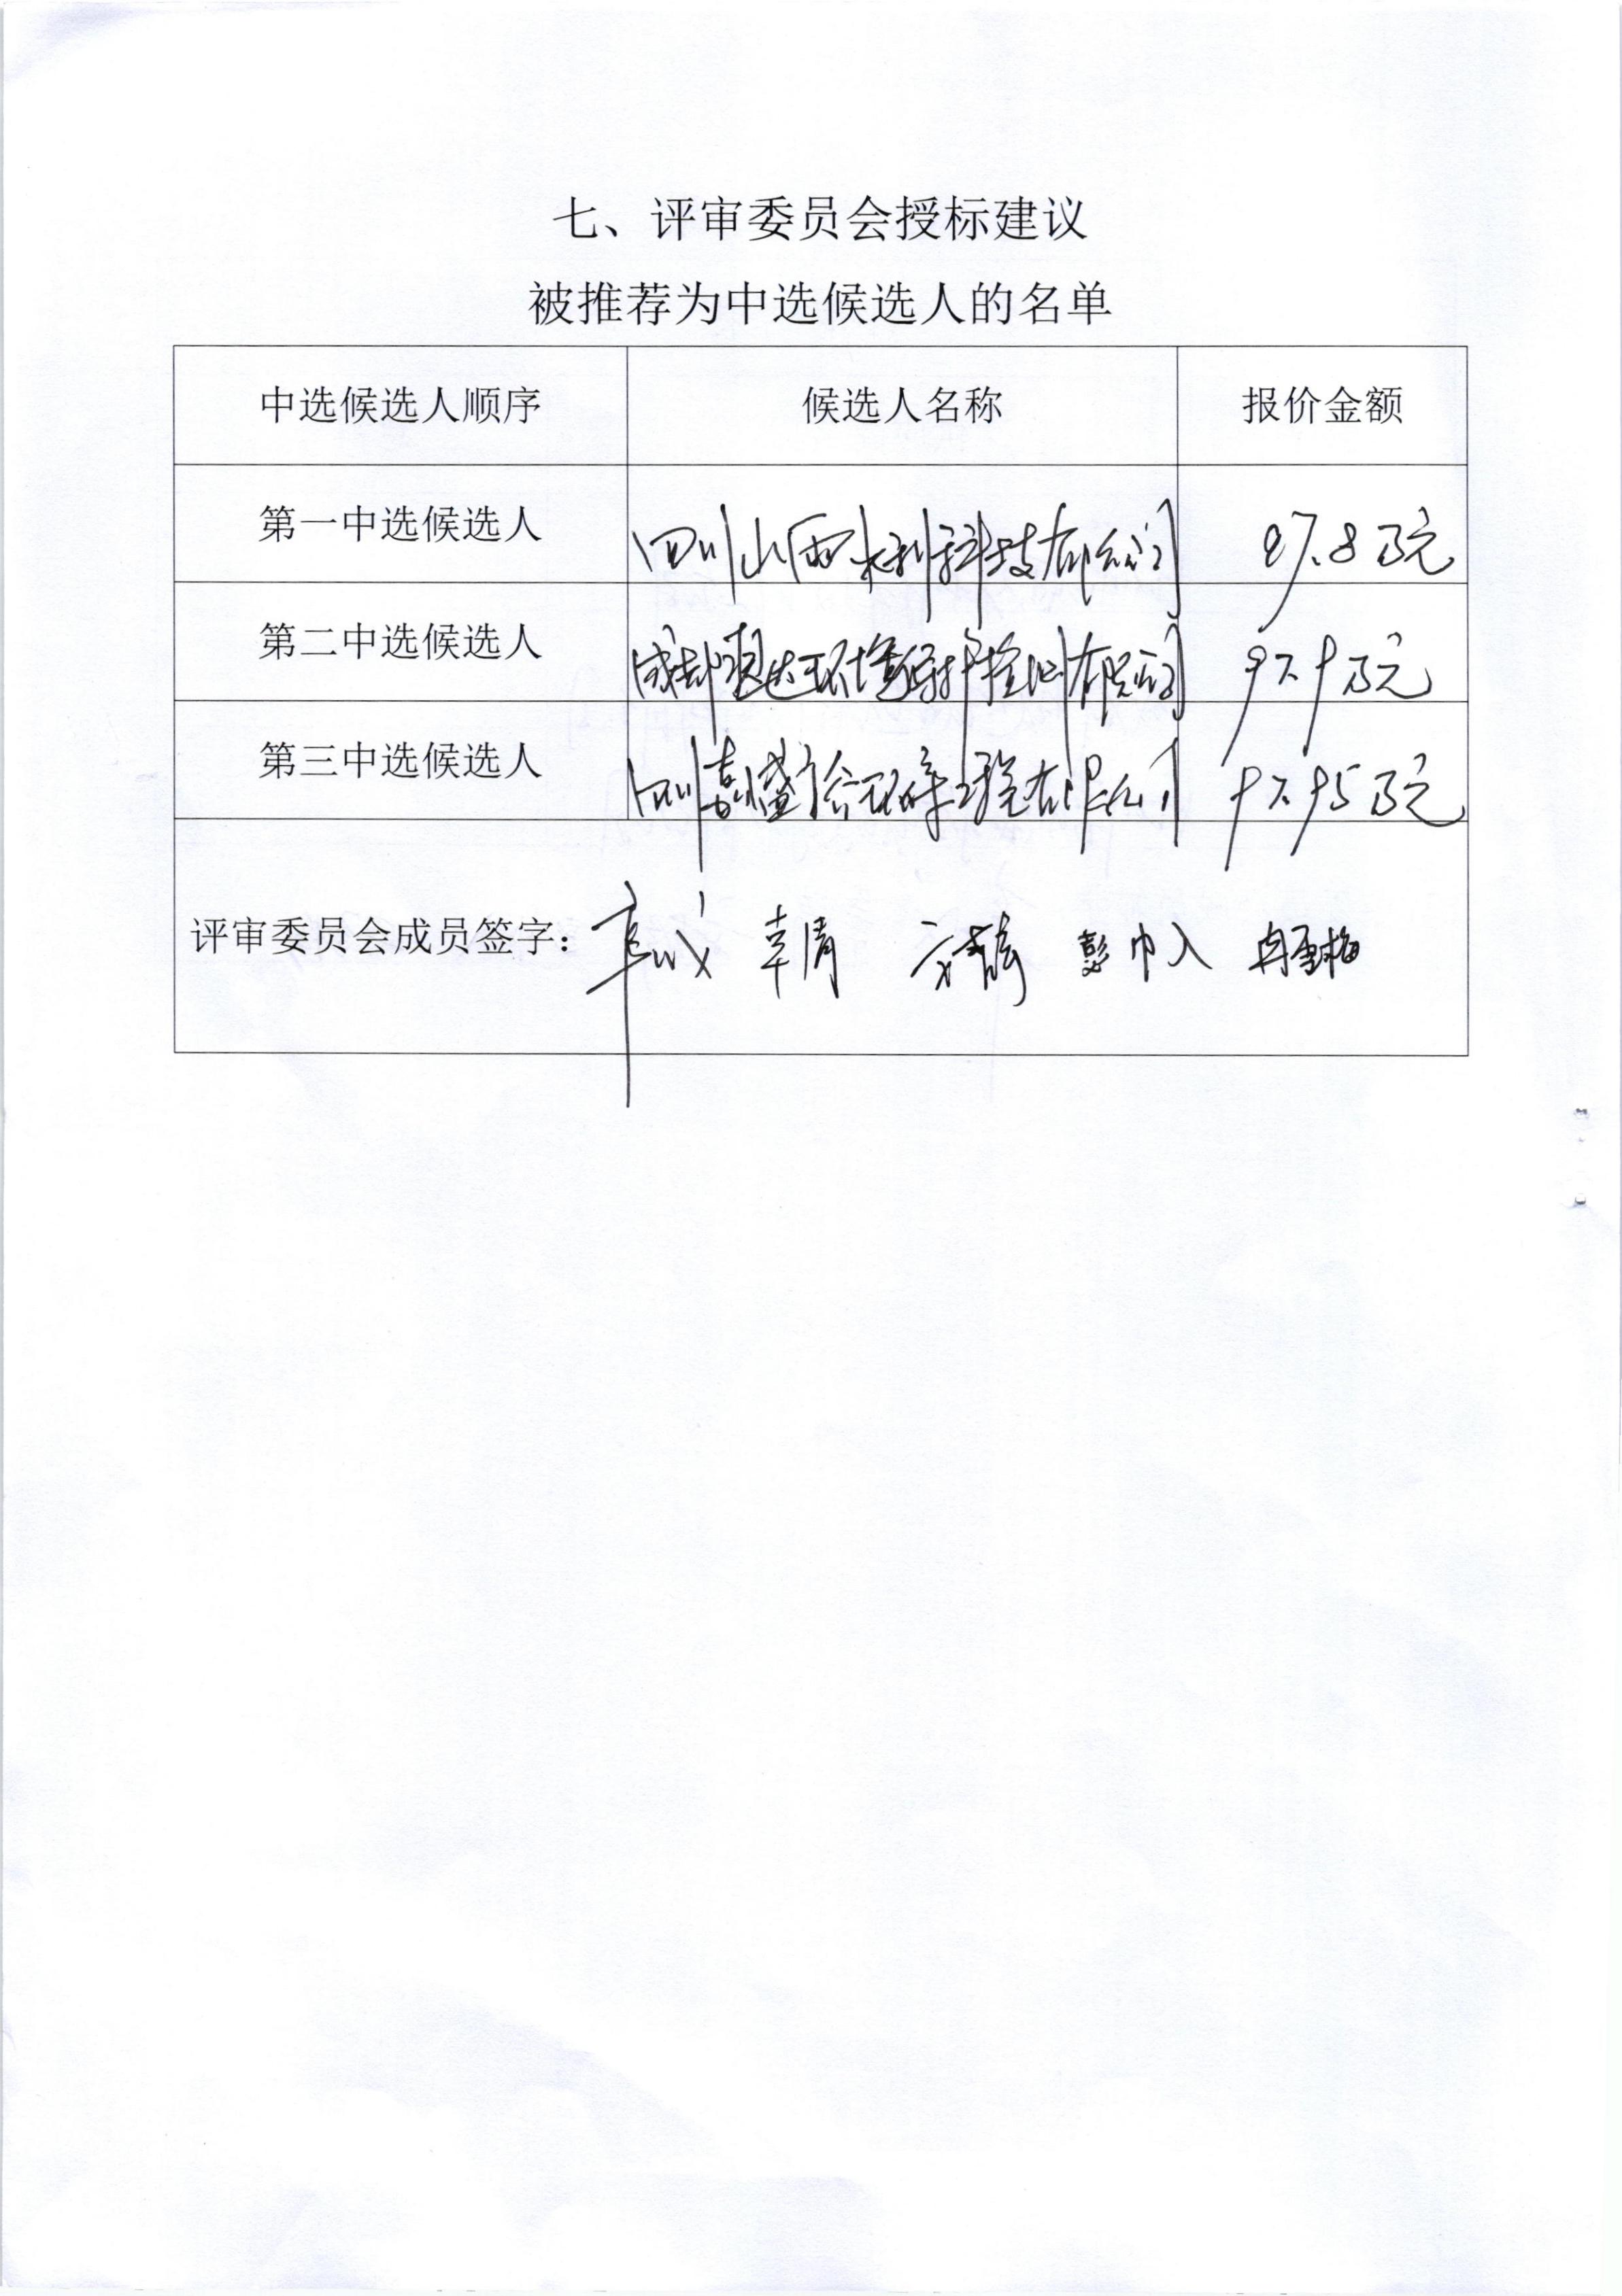 七、评审委员会授标建议
被推荐为中选候选人的名单
中选候选人顺序 候选人名称 报价金额
第一中选候选人 四川山西水利科技有限公司 97.8万元
第二中选候选人 成都 达环境保护检测有限公司 97.9万元
第三中选候选人 四川 盛 环保工程有限公司 97.95万元
评审委员会成员签字：